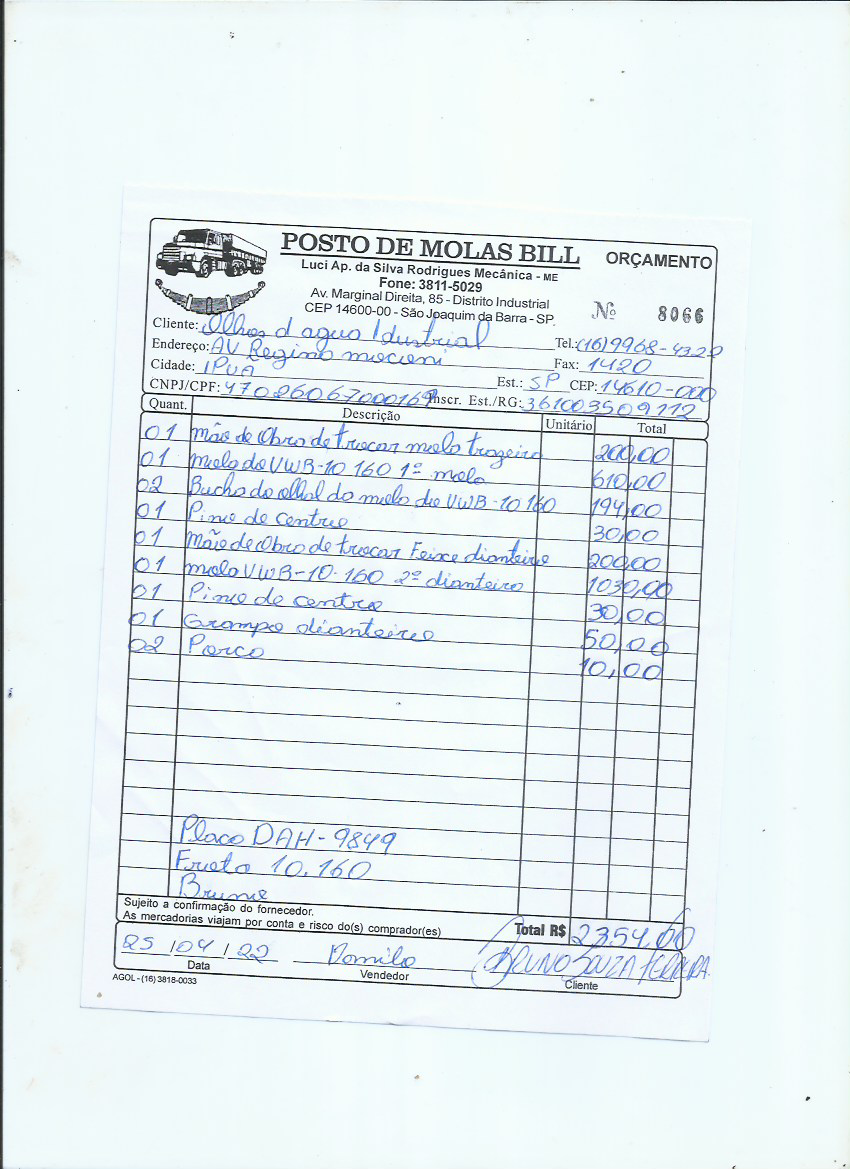 POSTO DE MOLAS BILL
ORÇAMENTO
Luci Ap. da Silva Rodrigues Mecânica - ME
Fone: 3811-5029
Av. Marginal Direita, 85 - Distrito Industrial
CEP 14600-00 - São Joaquim da Barra - SP.
Nº 8066
Cliente: Olhos d agua Idustrial
Endereço: AV Regina Tel.: (16)9968-4320
Cidade: IPUA Fax: 1420
Est.: SP CEP: 14610-000
CNPJ/CPF: 47026067000169 Inscr. Est./RG: 361003509112
Quant. Descrição Unitário Total
01 Mão de Obra de trocar mola trazeira 200,00
01 mola do VWB-10 160 1ª mola 610,00
02 Bucha do olhal da mola do VWB-10 160 194,00
01 Pino de centro 30,00
01 Mão de Obra de trocar Feixe dianteiro 200,00
01 mola VWB-10.160 2ª dianteira 1030,00
01 Pino de centro 30,00
01 Grampo dianteiro 50,00
02 Porca 10,00
Placa DAH-9849
Frota 10.160
Bruno
Sujeito a confirmação do fornecedor.
As mercadorias viajam por conta e risco do(s) comprador(es)
Total R$ 2354,00
25/04/22 Danilo BRUNO SOUZA FERREIRA.
Data Vendedor Cliente
AGOL - (16) 3818-0033